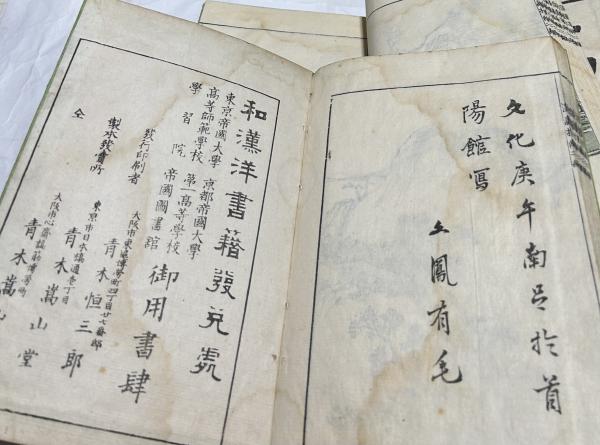 文化庚午南呂於首
陽館寫
文鳳有毛
和漢洋書籍發兌處
東京帝國大學 京都帝國大學
高等師範學校 第一高等學校
學習院 帝國圖書館
御用書肆
發行印刷者
大阪市東區博勞町四丁目廿七番邸
青木恒三郎
製本發賣所
東京市日本橋通壱丁目
青木嵩山堂
仝
大阪市心齋橋筋博勞町
青木嵩山